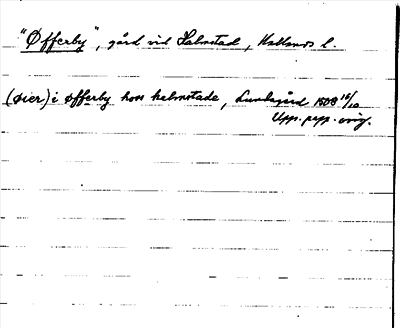 "Øfferby", gård vid Halmstad, Hallands l.
(øier) i øfferby hoss halmstade, Lundegård 1508 16/10
Upp. pepp. orig.